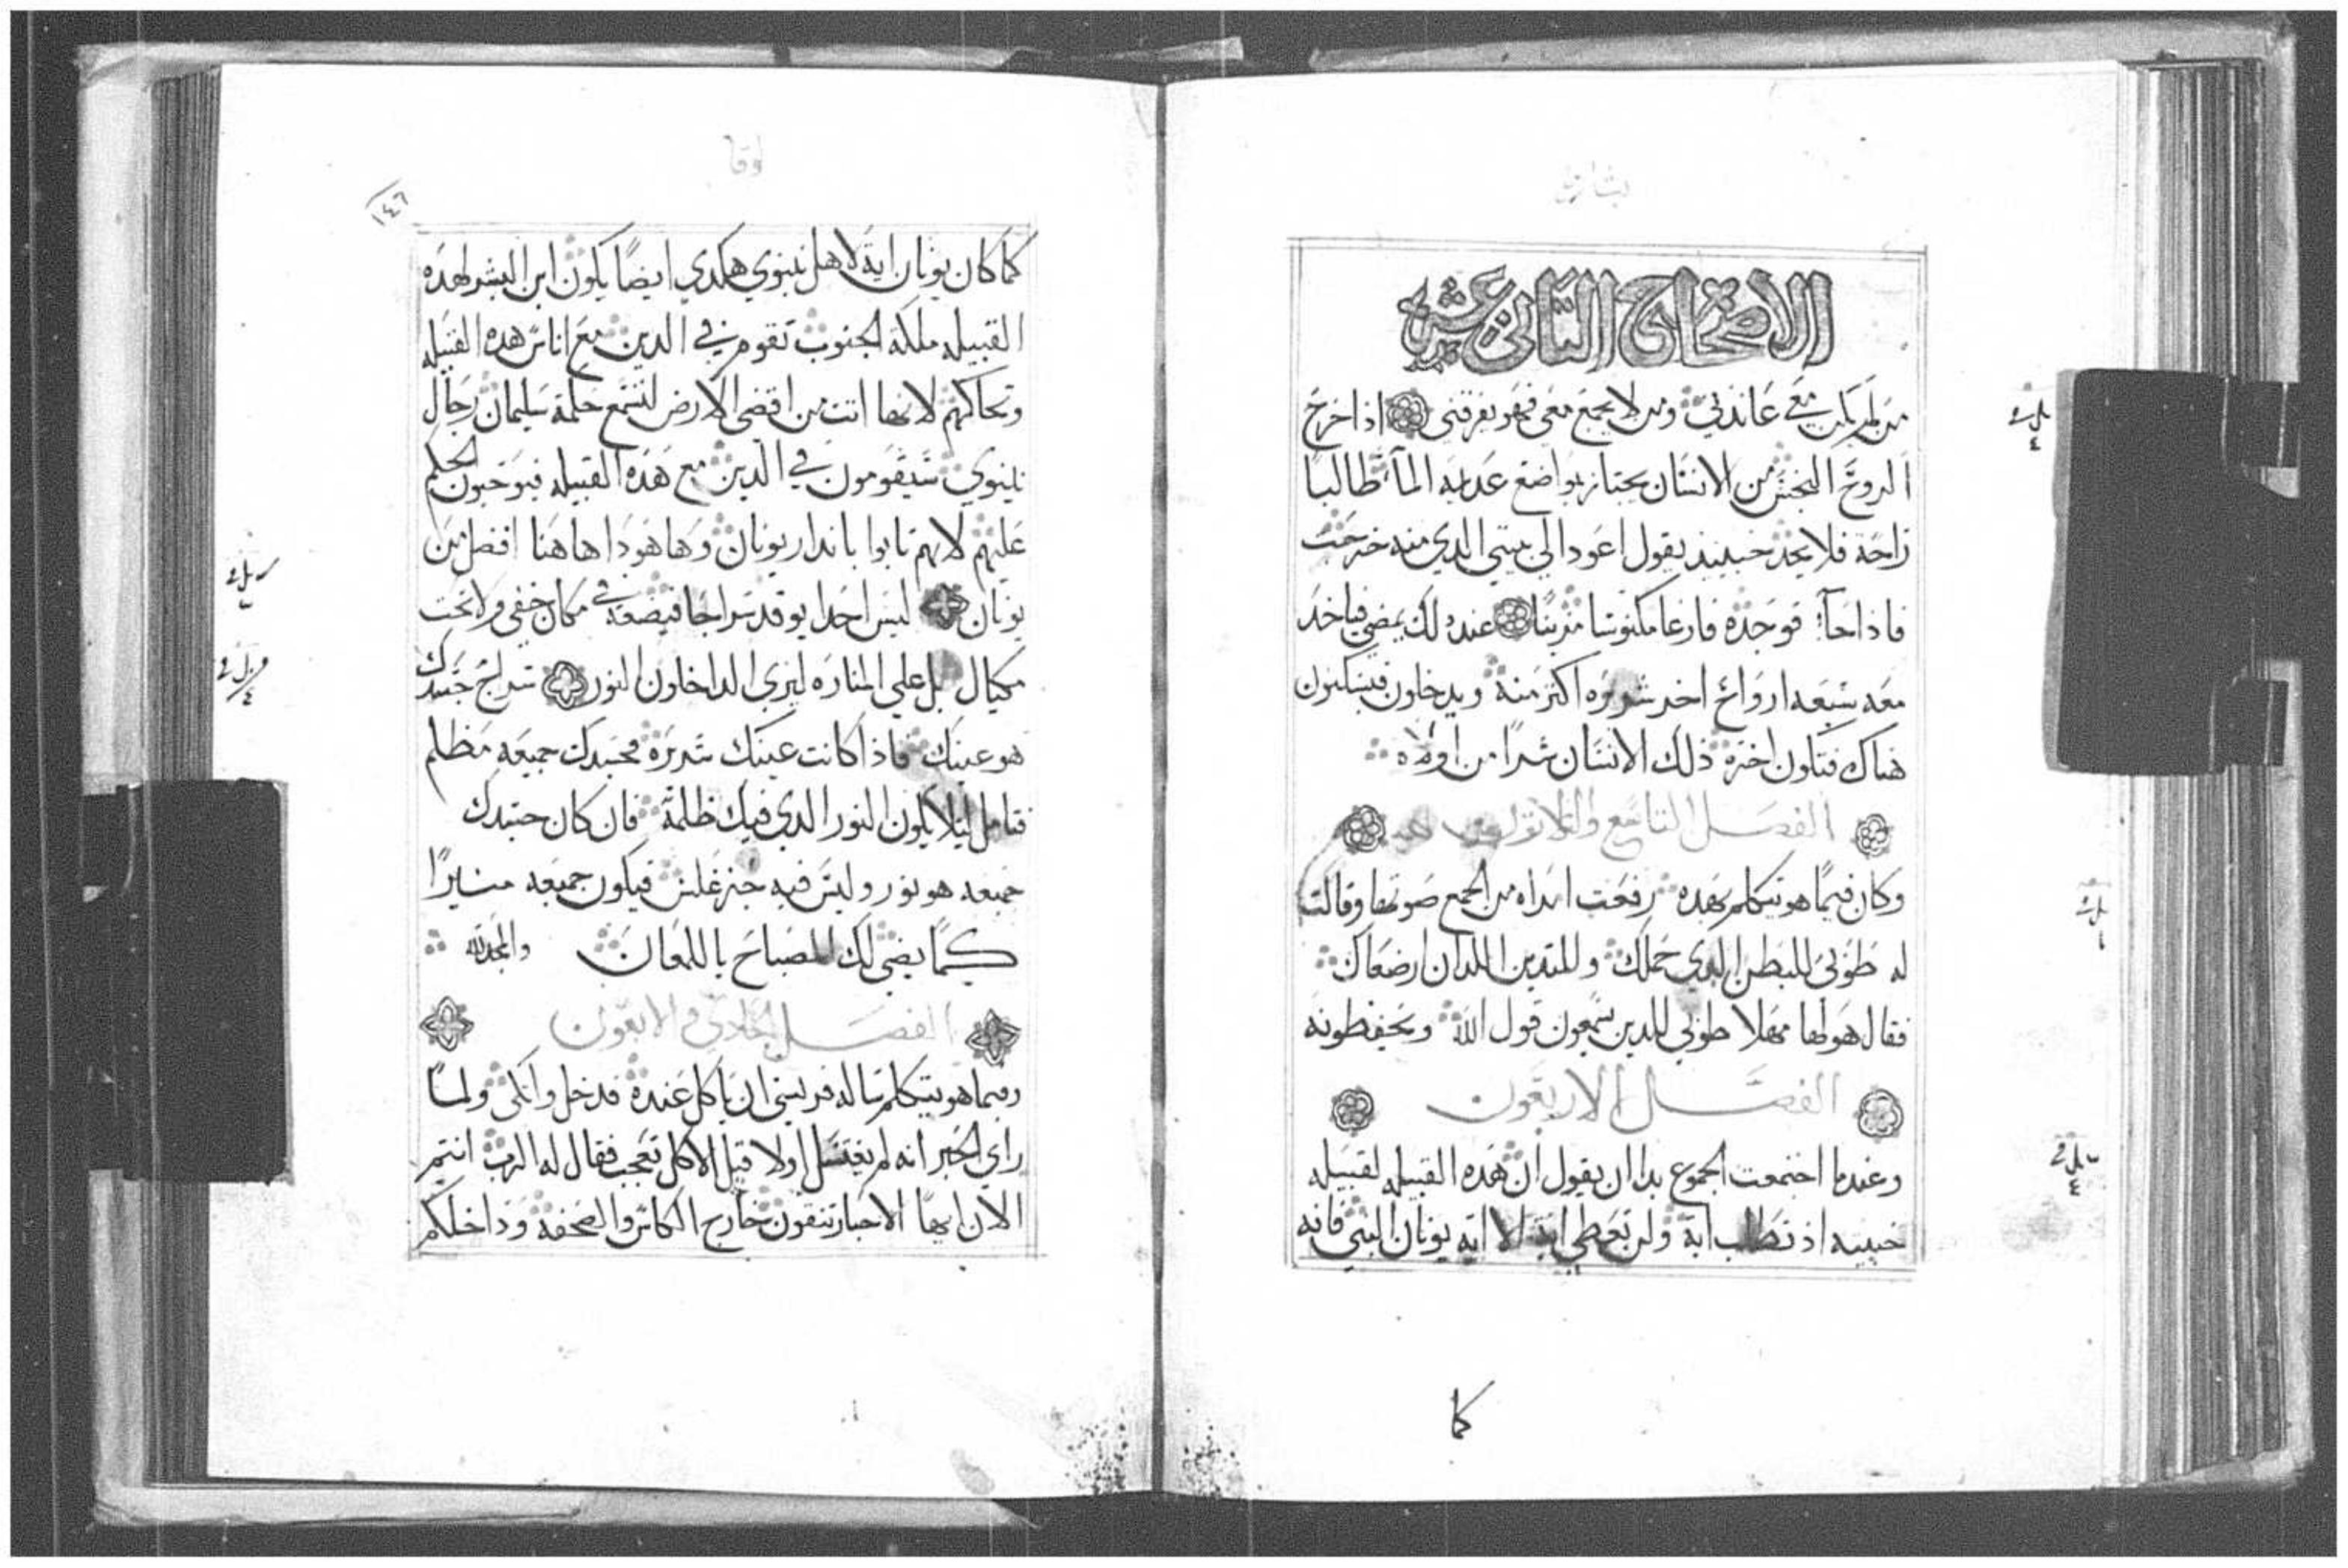 بشارة
الاصحاح التاني عشر
من لم يكن معي عاندني ومن لا يجمع معي فهو يفرقني اذا خرج
الروح النجس من الانسان يجتاز بمواضع عديمه المآ طالبا
راحة فلا يجد حينيد يقول اعود الي بيتي الدي منه خرجت
فاذا جآ فوجده فارغا مكنوسا مزينا عند دلك يمضي فياخد
معه سبعه ارواح اخر شريره اكتر منه ويدخلون فيسكنون
هناك فتكون اخرة ذلك الانسان شرا من اولاه
الفصل التاسع والتلاتون
وكان فيما هو يتكلم بهده رفعت امراه من الجمع صوتها وقالت
له طوبي للبطن الدي حملك وللتديين اللدان ارضعاك
فقال هو لها مهلا طوبي للدين يسمعون قول الله ويحفظونه
الفصل الاربعون
وعندما اجتمعت الجموع بدا ان يقول ان هده القبيله لقبيله
خبيته اذ تطلب اية ولن تعطي اية الا اية يونان النبي فانه
كما
لوقا
١٤٦
كما كان يونان اية لاهل نينوي هكدي ايضا يكون ابن البشر لهده
القبيله ملكة الجنوب تقوم في الدين مع اناس هده القبيله
وتحاكمهم لانها اتت من اقصي الارض لتسمع حكمة سليمان رجال
نينوي سيقومون في الدين مع هده القبيله فيوجبون الحكم
عليهم لانهم تابوا باندار يونان وها هودا هاهنا افضل من
يونان ليس احدا يوقد سراجا فيضعه في مكان خفي ولا تحت
مكيال بل علي المناره ليري الداخلون النور سراج جسدك
هو عينك فاذا كانت عينك شريره فجسدك جميعه مظلم
فتامل ليلا يكون النور الدي فيك ظلمة فان كان جسدك
جميعه هو نور وليس فيه جز غلس فيكون جميعه منيرا
كما يضي لك المصباح باللمعان والمجد لله
الفصل الحادي والاربعون
وفيما هو يتكلم ساله فريسي ان ياكل عنده فدخل واتكي ولما
راي الحبر انه لم يغتسل اولا قبل الاكل تعجب فقال له الرب انتم
الان ايها الاحبار تنقون خارج الكاس والصحفة وداخلكم